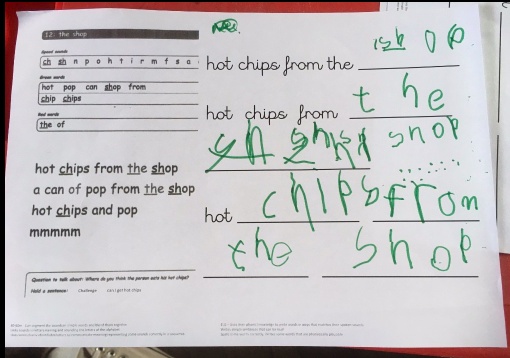 12. the shop
Speed sounds
ch sh n p o h t i r m f s a
Green words
hot pop can shop from
chip chips
Red words
the of
hot chips from the shop
a can of pop from the shop
hot chips and pop
mmmmm
Question to talk about: Where do you think the person eats his hot chips?
Hold a sentence: challenge can I get hot chips
hot chips from the shop
hot chips from the
shop
hot chips from
the shop